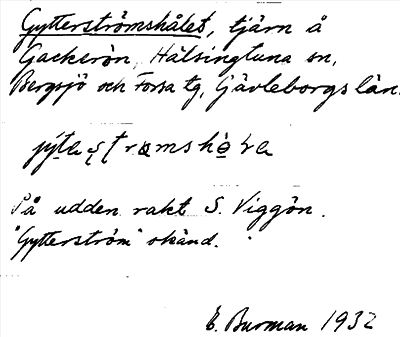 Gytterströmshålet, tjärn å
Gackerön, Hälsingtuna sn,
Bergsjö och Forsa tg, Gävleborgs län.
På udden rakt S. Viggön.
"Gytterström" okänd.
E. Burman 1932